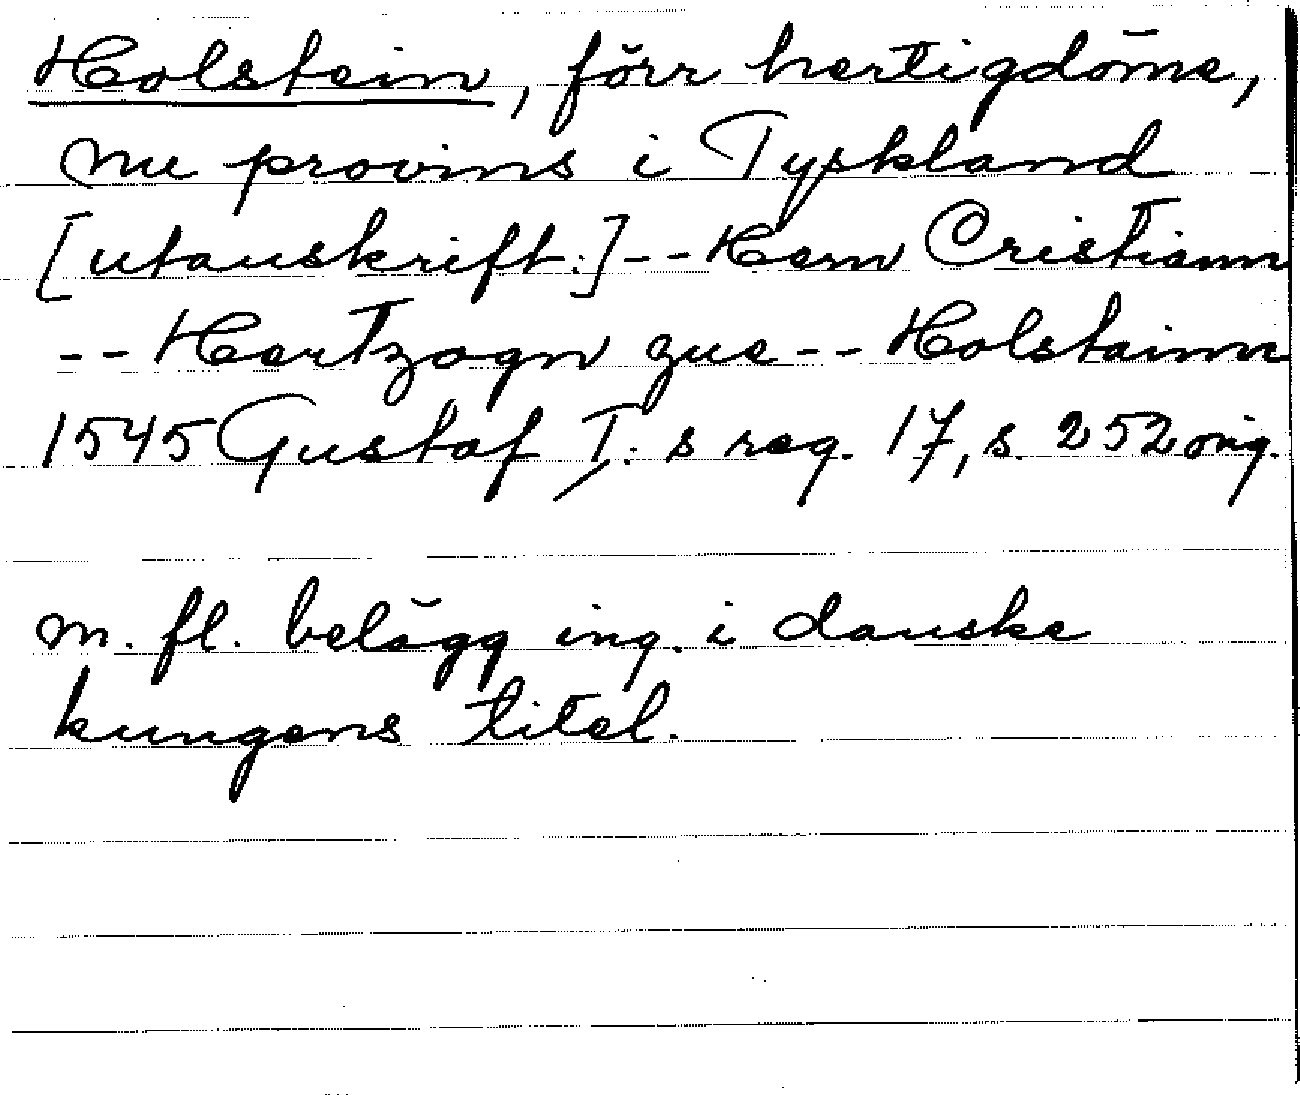 Holstein, förr hertigdöme,
nu provins i Tyskland
[utanskrift:] -- Hern Cristiann
-- Hertzogn zue -- Holsteinn
1545 Gustaf I:s reg. 17, s. 252 orig.
m. fl. belägg ing. i danske
kungens titel.